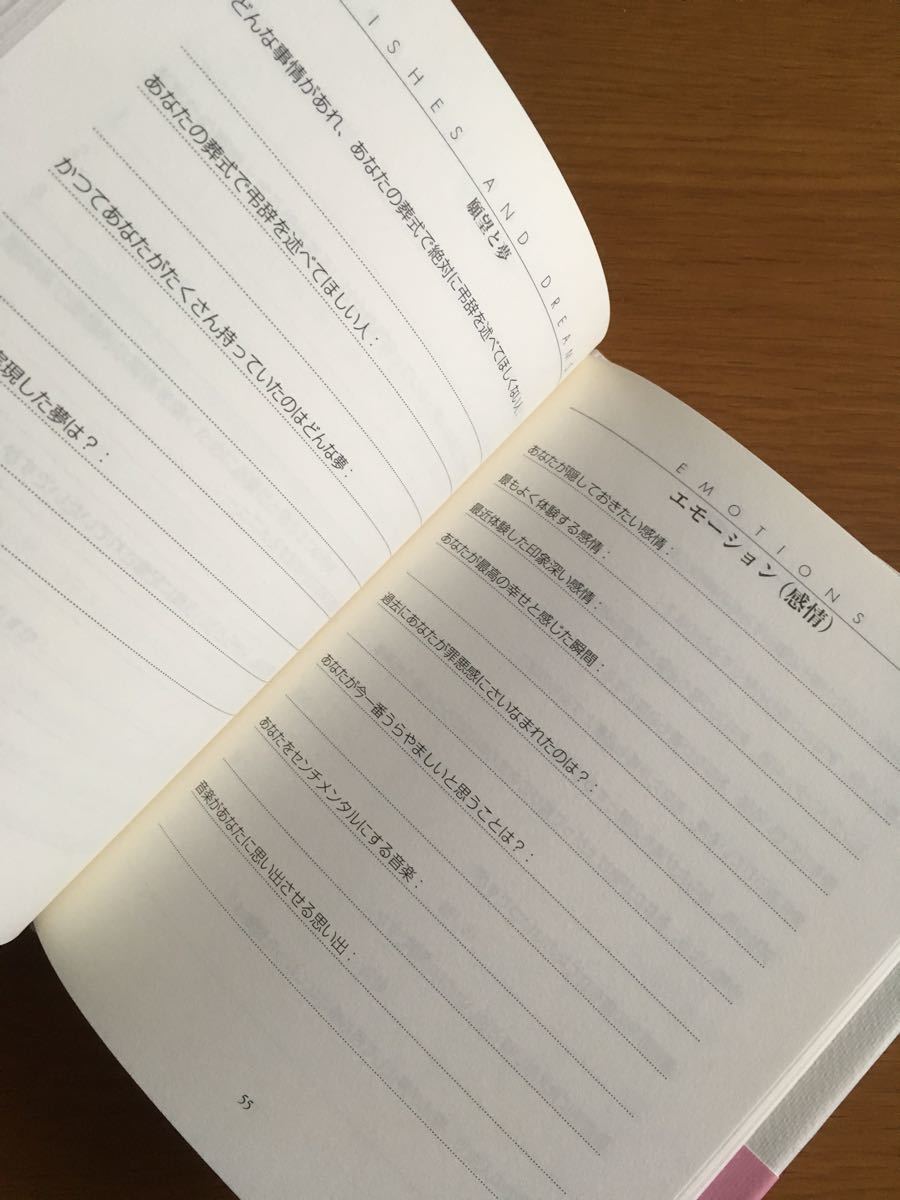 ISHES AND DREAMS
願望と夢
どんな事情があれ、あなたの葬式で絶対に弔辞を述べてほしくない人
あなたの葬式で弔辞を述べてほしい人：
かつてあなたがたくさん持っていたのはどんな夢：
現した夢は？：
EMOTIONS
エモーション（感情）
あなたが隠しておきたい感情：
最もよく体験する感情：
最近体験した印象深い感情：
あなたが最高の幸せと感じた瞬間：
過去にあなたが罪悪感にさいなまれたのは？：
あなたが今一番うらやましいと思うことは？：
あなたをセンチメンタルにする音楽：
音楽があなたに思い出させる思い出：
55